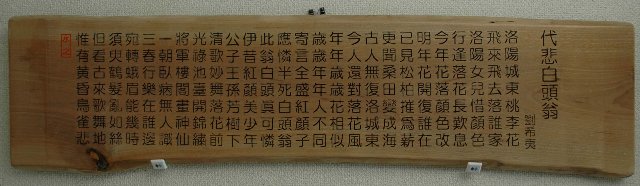 代悲白頭翁
劉希夷
洛陽城東桃李花
飛來飛去落誰家
洛陽女兒惜顔色
行逢落花長歎息
今年花落顔色改
明年花開復誰在
已見松柏摧爲薪
更聞桑田變成海
古人無復洛城東
今人還對落花風
年年歳歳花相似
歳歳年年人不同
寄言全盛紅顔子
應憐半死白頭翁
此翁白頭眞可憐
伊昔紅顔美少年
公子王孫芳樹下
清歌妙舞落花前
光祿池臺開錦繍
將軍樓閣畫神仙
一朝臥病無人識
三春行樂在誰邊
宛轉蛾眉能幾時
須臾鶴髮亂如絲
但看古來歌舞地
惟有黄昏鳥雀悲